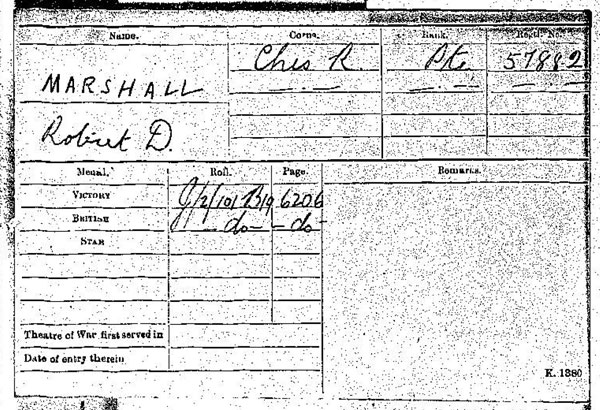 Name. Corps. Rank. Regtl. No.
MARSHALL Ches R. Pte 57882
Robert D.
Medal. Roll. Page. Remarks.
VICTORY J/2/101 B19 6206
BRITISH — do — — do —
STAR
Theatre of War first served in
Date of entry therein
K. 1380